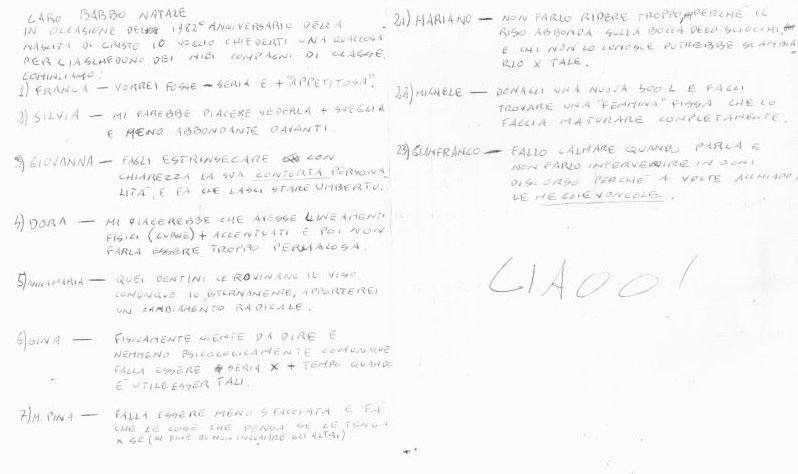 CARO BABBO NATALE
IN OCCASIONE DEL 1982° ANNIVERSARIO DELLA
NASCITA DI CRISTO IO VOGLIO CHIEDERTI UNA QUALCOSA
PER CIASCHEDUNO DEI MIEI COMPAGNI DI CLASSE.
COMINCIAMO:
1) FRANCA — VORREI FOSSE - SERIA E + "APPETITOSA".
2) SILVIA — MI FAREBBE PIACERE VEDERLA + SVEGLIA
E MENO ABBONDANTE DAVANTI.
3) GIOVANNA — FAGLI ESTRINSECARE CON
CHIAREZZA LA SUA CONTORTA PERSONA
LITÀ, E FA CHE LASCI STARE UMBERTO.
4) DORA — MI PIACEREBBE CHE AVESSE LINEAMENTI
FISICI (CURVE) + ACCENTUATI E POI NON
FARLA ESSERE TROPPO PERMALOSA.
5) ANNAMARIA — QUEI DENTINI LE ROVINANO IL VISO
COMUNQUE IO, ESTERNAMENTE, APPORTEREI
UN CAMBIAMENTO RADICALE.
6) GINA — FISICAMENTE NIENTE DA DIRE E
NEMMENO PSICOLOGICAMENTE COMUNQUE
FALLA ESSERE SERIA X + TEMPO QUANDO
E' UTILE ESSER TALI.
7) M. PINA — FALLA ESSERE MENO SFACCIATA E FA
CHE LE COSE CHE PENSA SE LE TENGA
X SE (AL FINE DI NON GLI ALTRI)
21) MARIANO — NON FARLO RIDERE TROPPO, PERCHE' IL
RISO ABBONDA SULLA BOCCA DEGLI SCIOCCHI,
E CHI NON LO CONOSCE POTREBBE SCAMBIA
RLO X TALE.
22) MICHELE — DONAGLI UNA NUOVA 500 L E FAGLI
TROVARE UNA "FEMMINA" FISSA CHE LO
FACCIA MATURARE COMPLETAMENTE.
23) GIANFRANCO — FALLO CALMARE QUANDO PARLA E
NON FARLO INTERVENIRE IN OGNI
DISCORSO PERCHE' A VOLTE ACCHIAPP
LE MEGLIEVONGOLE.
CIAOO!